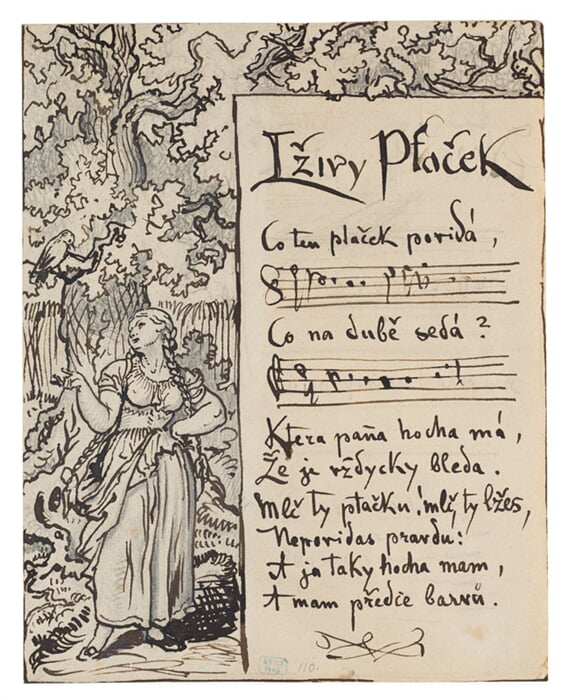 Lživy Ptaček
Co ten ptaček povidá,
Co na dubě sedá?
Ktera paňa hocha má,
Že je vždycky bleda.
Mlč ty ptačku! mlč, ty lžeš,
Nepovidas pravdu:
A ja taky hocha mam,
A mam předce barvů.
110.